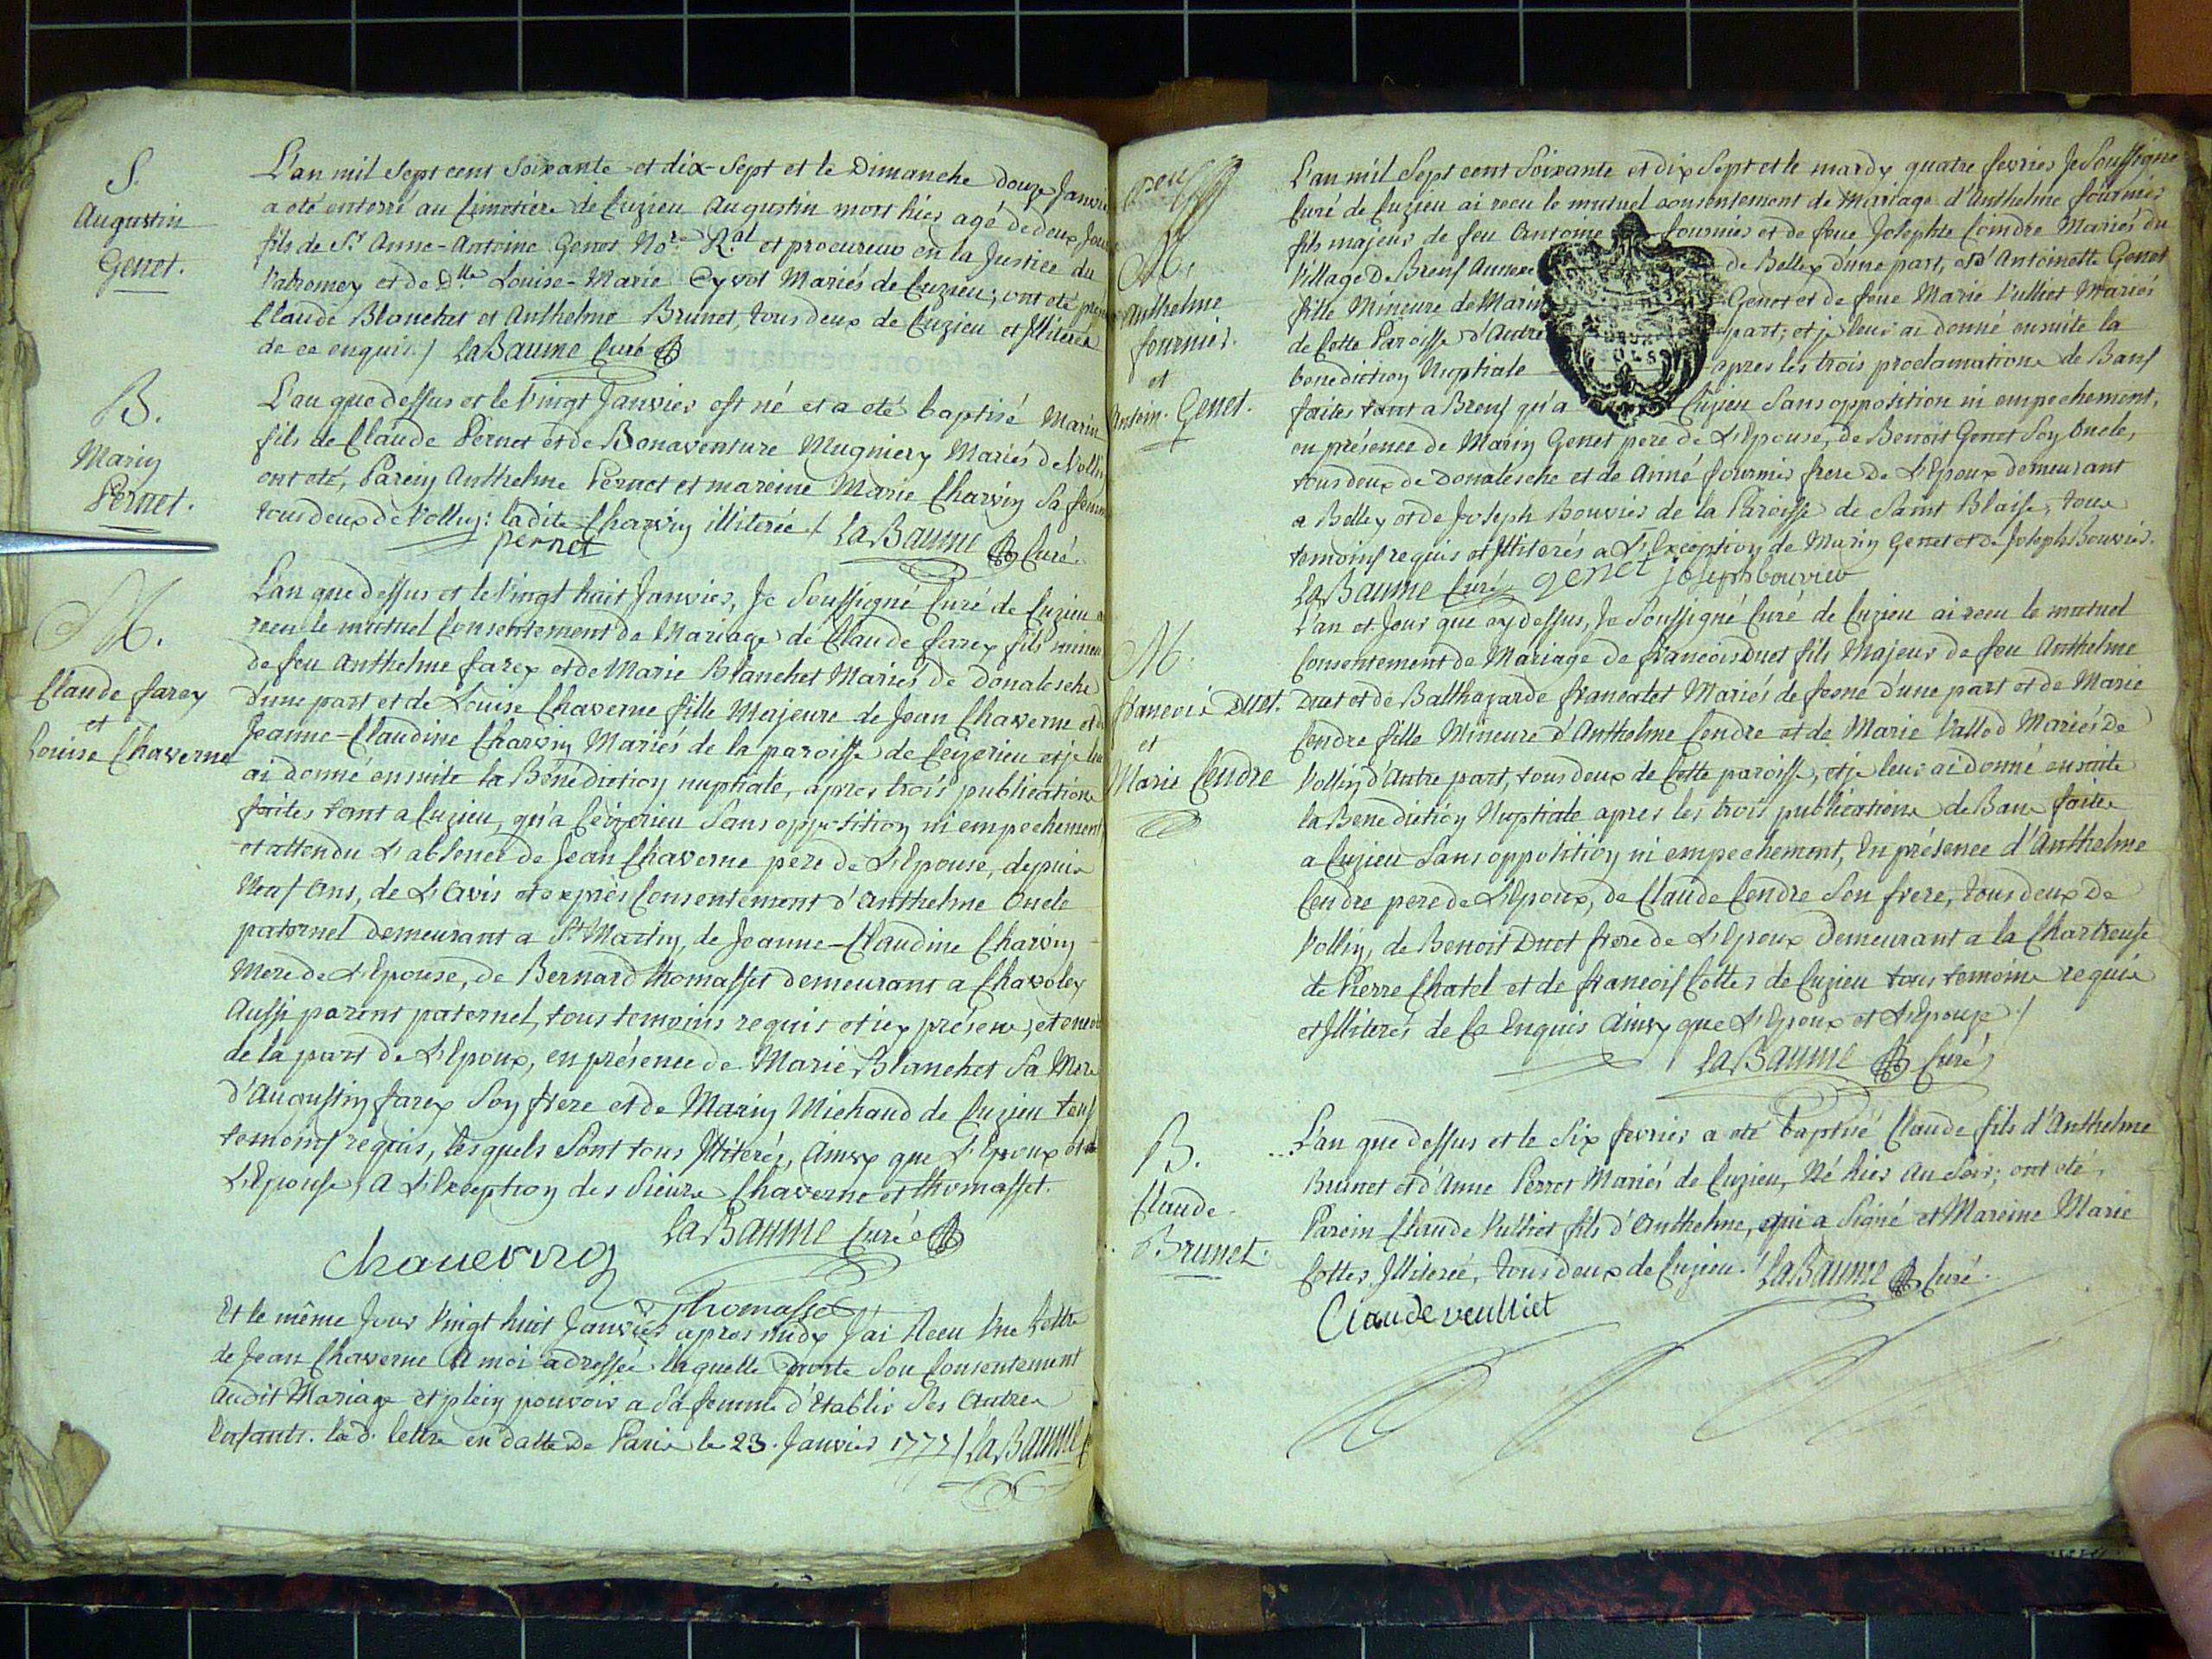 S.
Augustin
Genet.
L'an mil Sept cent Soixante et dix-Sept et le Dimanche douze Janvier
a oté enterré au Cimetière de Cuzieu Augustin mort hier agé de deux Jours
fils de Sr Anne-Antoine Genet Nore Ral et procureur en la Justice du
Valromey et de Dlle Louise-Marie Cyvot Mariés de Cuzieu; ont oté
Claude Blanchet et Anthelme Brunet, tous deux de Cuzieu et Illiterés
de ce enquis ./ LaBaume Curé
B.
Marin
Pernet.
L'an que dessus et le Vingt Janvier est né et a oté baptisé Marin
fils de Claude Pernet et de Bonaventure Mugniery Mariés de Vollin
ont oté, Parein Anthelme Pernet et mareine Marie Charvin Sa femme
tous deux de Vollin: la dite Charvin illiterée ./ LaBaume Curé
pernet
M.
Claude farey
et
Louise Chaverne
L'an que dessus et le Vingt huit Janvier, Je Soussigné Curé de Cuzieu
recu le mutuel Consentement de Mariage de Claude farey fils mineur
de feu Anthelme farey et de Marie Blanchet Mariés de Donalesche
d'une part et de Louise Chaverne fille Majeure de Jean Chaverne et de
Jeanne-Claudine Charvin Mariés de la paroisse de Ceyzerieu et je leur
ai donné ensuite la Bénédiction nuptiale, apres trois publications
faites tant a Cuzieu, qu'a Ceyzerieu Sans opposition ni empechement
et attendu L'absence de Jean Chaverne pere de L'Epouse, depuis
Neuf Ans, de L'Avis et exprès Consentement d'Anthelme Oncle
paternel demeurant a St Martin, de Jeanne-Claudine Charvin
Mere de L'Epouse, de Bernard Thomasset demeurant a Chavoley
Aussi parent paternel, tous temoins requis et icy présens; et encore
de la part de L'Epoux, en présence de Marie Blanchet Sa Mere
d'Augustin farey Son frere et de Marin Michaud de Cuzieu tous
temoins requis, lesquels Sont tous Illiterés, Ainsy que L'Epoux et
L'Epouse, A L'Exception des Sieurs Chaverne et Thomasset.
LaBaume Curé
Chaverne
Thomasset
Et le même Jour Vingt huit Janvier apres midy J'ai Recu Une Lettre
de Jean Chaverne A moi adressée laquelle porte Son Consentement
audit Mariage et plein pouvoir a Sa femme d'Etablir Ses Autres
Enfants. la d. lettre en datte de Paris le 23. Janvier 1777 / LaBaume
M.
Anthelme
fournier.
et
Antoin. Genet.
L'an mil Sept cent Soixante et dix Sept et le mardy quatre fevrier Je Soussigné
Curé de Cuzieu ai recu le mutuel consentement de Mariage d'Anthelme fournier
fils majeur de feu Antoine fournier et de feue Josephte Coindre Mariés du
Village de Brens Annexe de Belley d'une part, et d'Antoinette Genet
fille Mineure de Marin Genet et de feue Marie Vulliet Mariés
de Cette Paroisse d'Autre part; et je leur ai donné ensuite la
benediction Nuptiale apres les trois proclamations de Bans
faites tant a Brens qu'a Cuzieu Sans opposition ni empechement,
en présence de Marin Genet pere de L'Epouse, de Benoit Genet Son Oncle,
tous deux de Donalesche et de Aimé fournier frere de L'Epoux demeurant
a Belley et de Joseph Bouvier de la Paroisse de Saint Blaise, tous
temoins requis et Illiterés a L'Exception de Marin Genet et de Joseph Bouvier.
LaBaume Curé genet joseph bouvier
M.
francois Duet.
et
Marie Cendre
L'an et Jour que cy dessus, Je Soussigné Curé de Cuzieu ai recu le mutuel
Consentement de Mariage de francois Duet fils Majeur de feu Anthelme
Duet et de Balthazarde francatet Mariés de d'une part et de Marie
Cendre fille Mineure d'Anthelme Cendre et de Marie Vallod Mariés de
Vollin d'Autre part, tous deux de Cette paroisse, et je leur ai donné ensuite
la Benediction Nuptiale apres les trois publications de Bans faites
a Cuzieu Sans opposition ni empechement, En présence d'Anthelme
Cendre pere de L'Epoux, de Claude Cendre Son frere, tous deux de
Vollin, de Benoit Duet frere de L'Epoux demeurant a la Chartreuse
de Pierre Chatel et de francois Cottes de Cuzieu tous temoins requis
et Illiterés de Ce Enquis Ainsy que L'Epoux et L'Epouze ./
LaBaume Curé
B.
Claude
Brunet.
L'an que dessus et le Six fevrier a oté baptisé Claude fils d'Anthelme
Brunet et d'Anne Perret Mariés de Cuzieu, Né hier au Soir; ont oté,
Parein Claude Vulliet fils d'Anthelme, qui a Signé et Mareine Marie
Cottes, Illiterée, tous deux de Cuzieu ./ LaBaume Curé.
Claude veulliet